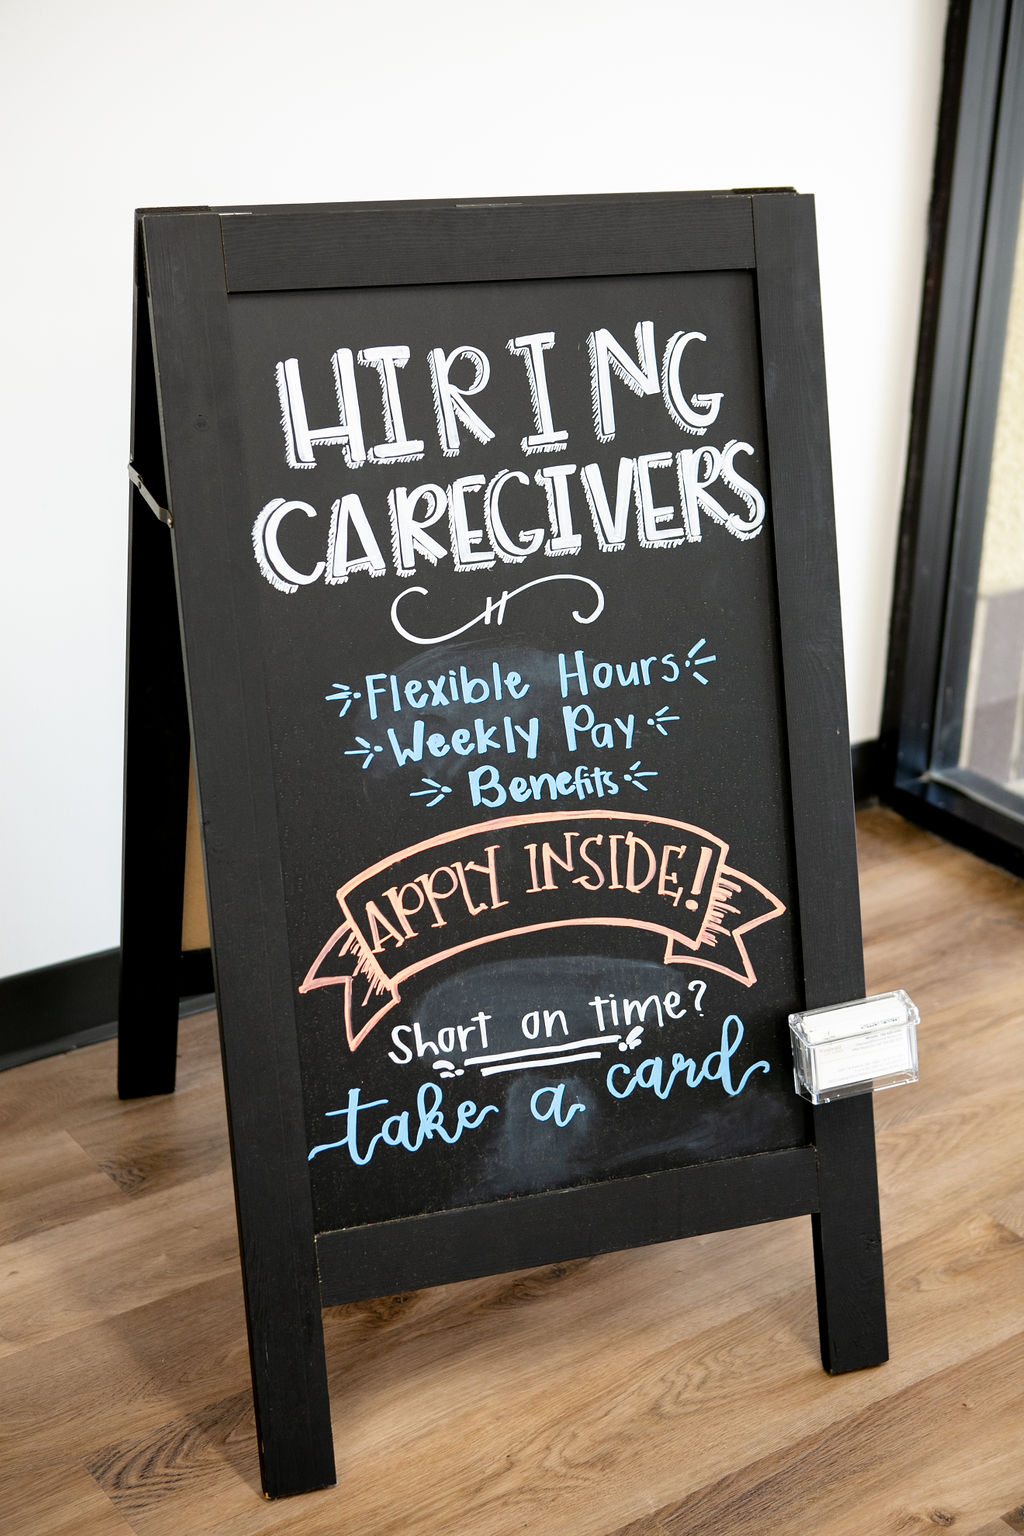 HIRING
CAREGIVERS
Flexible Hours
Weekly Pay
Benefits
APPLY INSIDE!
Short on time?
take a card